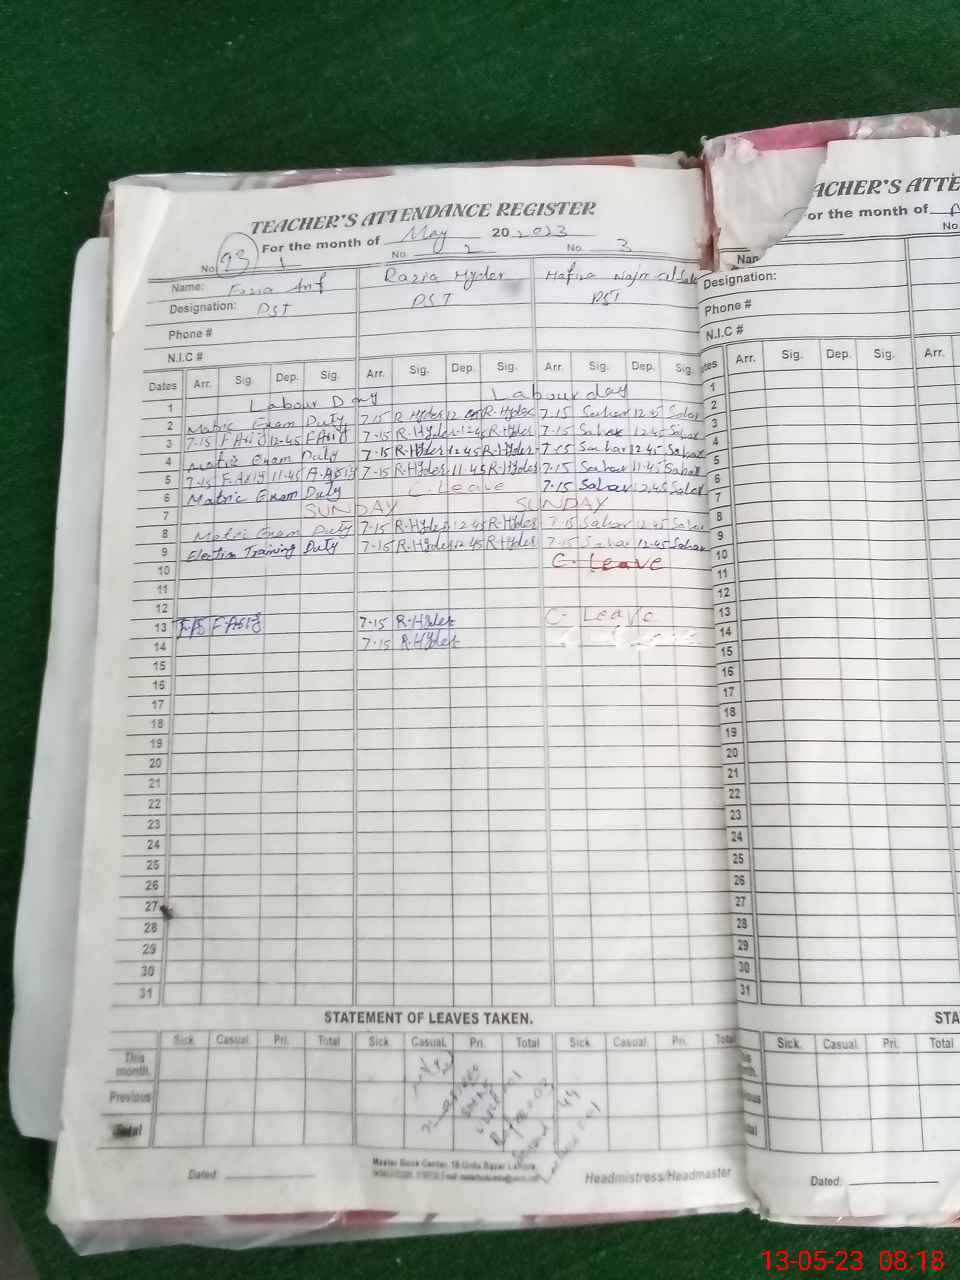 TEACHER'S ATTENDANCE REGISTER
For the month of May 20 2023
No. 93 1 No 2 No. 3
Name: Razia Hyder Hafiza
Designation: PST PST PST
Phone #
N.I.C #
Dates Arr. Sig. Dep. Sig. Arr. Sig. Dep. Sig. Arr. Sig. Dep. Sig.
1 Labour Day Labour day
2 Matric Exam Duty 7-15 R.Hyder 12 R-Hyder 7-15 Sahar 12.45 Sahar
3 7-15 F.Asif 12-45 F.Asif 7-15 R-Hyder 12.45 R-Hyder 7-15 Sahar 12.45 Sahar
4 Matric Exam Duty 7-15 R-Hyder 12.45 R-Hyder 7-15 Sahar 12.45 Sahar
5 7-15 F.Asif 11-45 F.Asif 7-15 R-Hyder 11.45 R-Hyder 7-15 Sahar 11.45 Sahar
6 Matric Exam Duty C.Leave 7-15 Sahar 12.45 Sahar
7 SUNDAY SUNDAY
8 Matric Exam Duty 7-15 R-Hyder 12.45 R-Hyder 7-15 Sahar 12.45 Sahar
9 Election Training Duty 7-15 R-Hyder 12.45 R-Hyder 7-15 Sahar 12-45 Sahar
10 C. Leave
11
12
13 7-15 F.Asif 7-15 R.Hyder C. Leave
14 7-15 R.Hyder
15
16
17
18
19
20
21
22
23
24
25
26
27
28
29
30
31
STATEMENT OF LEAVES TAKEN.
Sick Casual Pri. Total Sick Casual Pri. Total Sick Casual. Pri. Total
This month.
Previous
Total
Master Book Center, 16-Urdu Bazar Lahore.
Dated: Headmistress/Headmaster
ACHER'S ATTE
or the month of
No.
Nan
Designation:
Phone #
N.I.C #
tes Arr. Sig. Dep. Sig. Arr.
1
2
3
4
5
6
7
8
9
10
11
12
13
14
15
16
17
18
19
20
21
22
23
24
25
26
27
28
29
30
31
STA
Sick. Casual. Pri. Total
Dated:
13-05-23 08:18